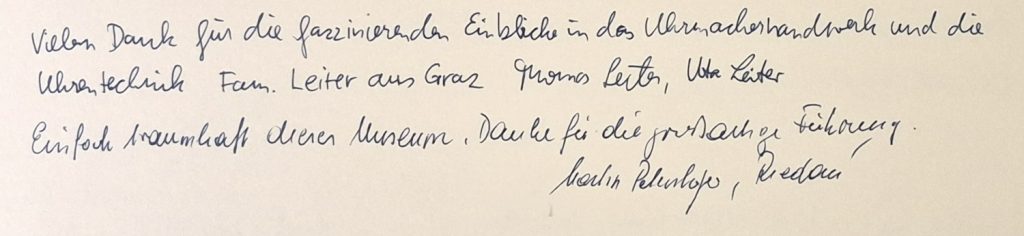 Vielen Dank für die faszinierenden Einblicke in das Uhrmacherhandwerk und die
Uhrentechnik Fam. Leiter aus Graz Thomas Leiter, Uta Leiter
Einfach traumhaft dieses Museum. Danke für die grossartige Führung.
Martin, Riedau